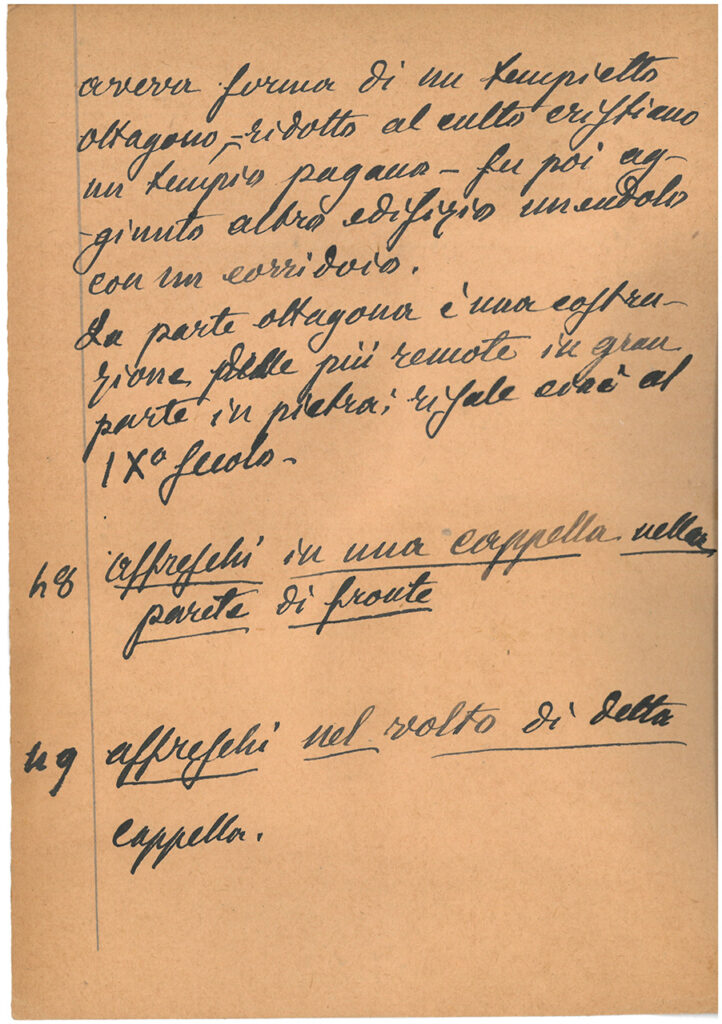 aveva forma di un tempietto
ottagono, – ridotto al culto cristiano
un tempio pagano – fu poi ag-
-giunto altro edifizio unendolo
con un corridoio.
La parte ottagona è una costru-
zione delle più remote in gran
parte in pietra; risale circa al
IXº secolo –
48 affreschi in una cappella nella
parete di fronte
49 affreschi nel volto di detta
cappella.